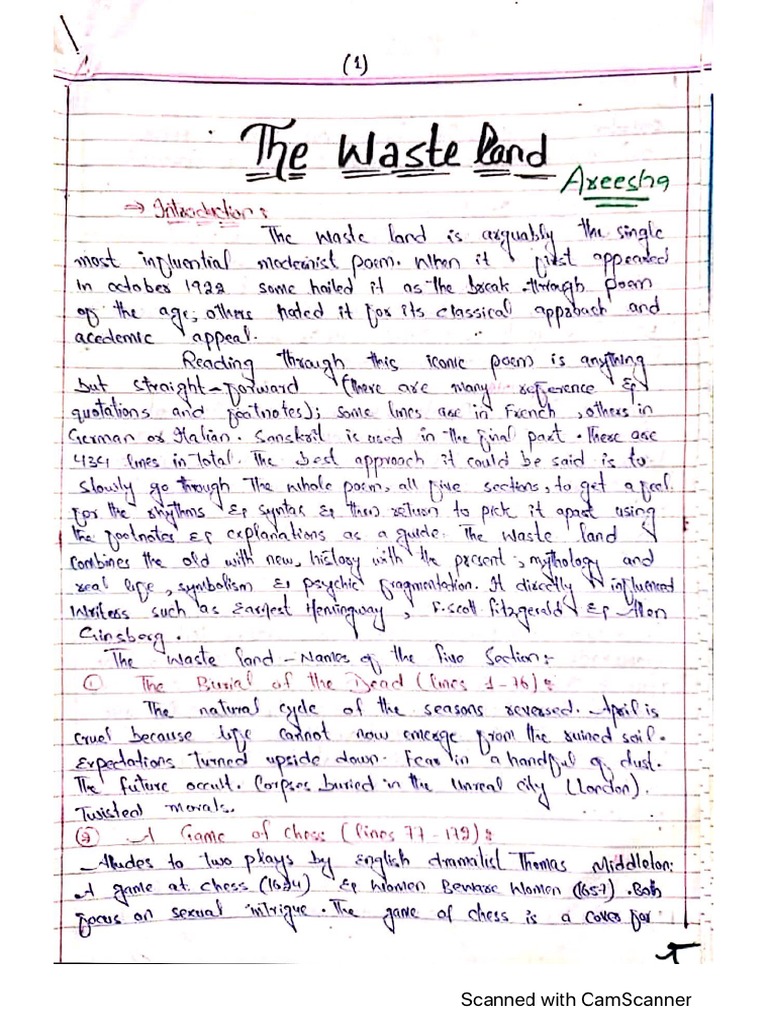 (1)
The Waste Land
Areesha
→ Introduction:
The Waste land is arguably the single
most influential modernist poem. When it first appeared
in october 1922 some hailed it as the break-through poem
of the age, others hated it for its classical approach and
acedemic appeal.
Reading through this iconic poem is anything
but straight-forward (there are many reference &
quotations and footnotes); some lines are in French, others in
German or Italian. Sanskrit is used in the final part. There are
434 lines in total. The best approach it could be said is to
slowly go through the whole poem, all five sections, to get a feel
for the rhythms & syntax & then return to pick it apart using
the footnotes & explanations as a guide. The Waste land
combines the old with new, history with the present, mythology and
real life, symbolism & psychic fragmentation. It directly influenced
writers such as Earnest Hemingway, F.Scott Fitzgerald & Allen
Ginsberg.
The Waste land - Names of the five Section:-
① The Burial of the Dead (lines 1-76):
The natural cycle of the seasons reversed. April is
cruel because life cannot now emerge from the ruined soil.
Expectations turned upside down. Fear in a handful of dust.
The future occult. Corpses buried in the unreal city (London).
Twisted morals.
② A Game of Chess (lines 77-172):
Alludes to two plays by English dramatist Thomas Middleton:
A game at chess (1624) & Women Beware Women (1657). Both
focus on sexual intrigue. The game of chess is a cover for
Scanned with CamScanner